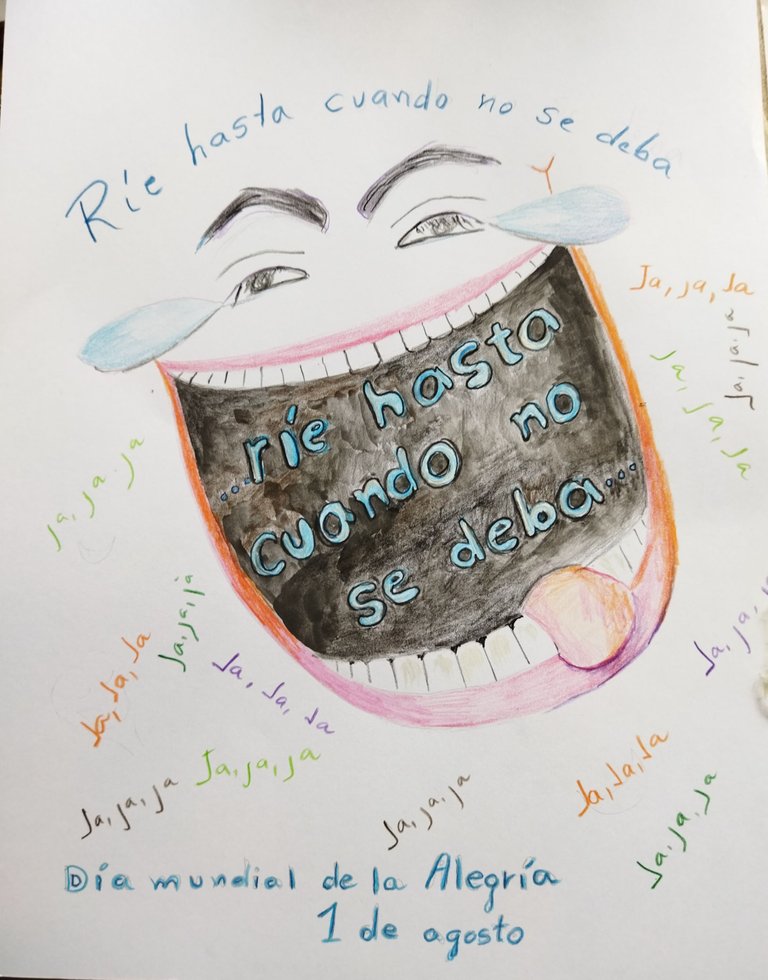 Ríe hasta cuando no se deba
Ja, ja, Ja
Ja, ja, ja
Ja, Ja, Ja
...ríe hasta
cuando no
se deba...
Ja, ja, ja
Ja, ja, ja
Ja, Ja, Ja
Ja, Ja, Ja
Ja, ja,
Ja, ja, ja
Ja, ja, ja
Ja, ja, ja
Ja, Ja, Ja
Ja, ja, ja
Día mundial de la Alegría
1 de agosto